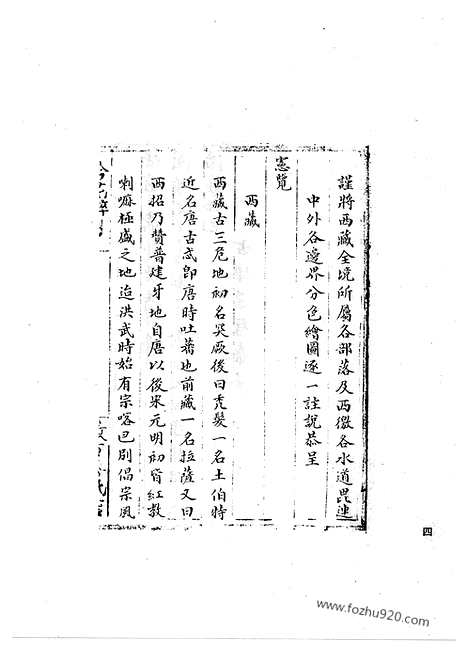 謹將西藏全境所屬各部落及西徼各水道毘連
中外各邊界分色繪圖逐一註説恭呈
憲覽
西藏
西藏古三危地初名突厥後曰禿髮一名土伯特
近名唐古忒即唐時吐蕃也前藏一名拉薩又曰
西招乃贊普建牙地自唐以後宋元明初皆紅教
喇嘛極盛之地迨洪武時始有宗喀巴別倡宗風
四
www.fozhu920.com